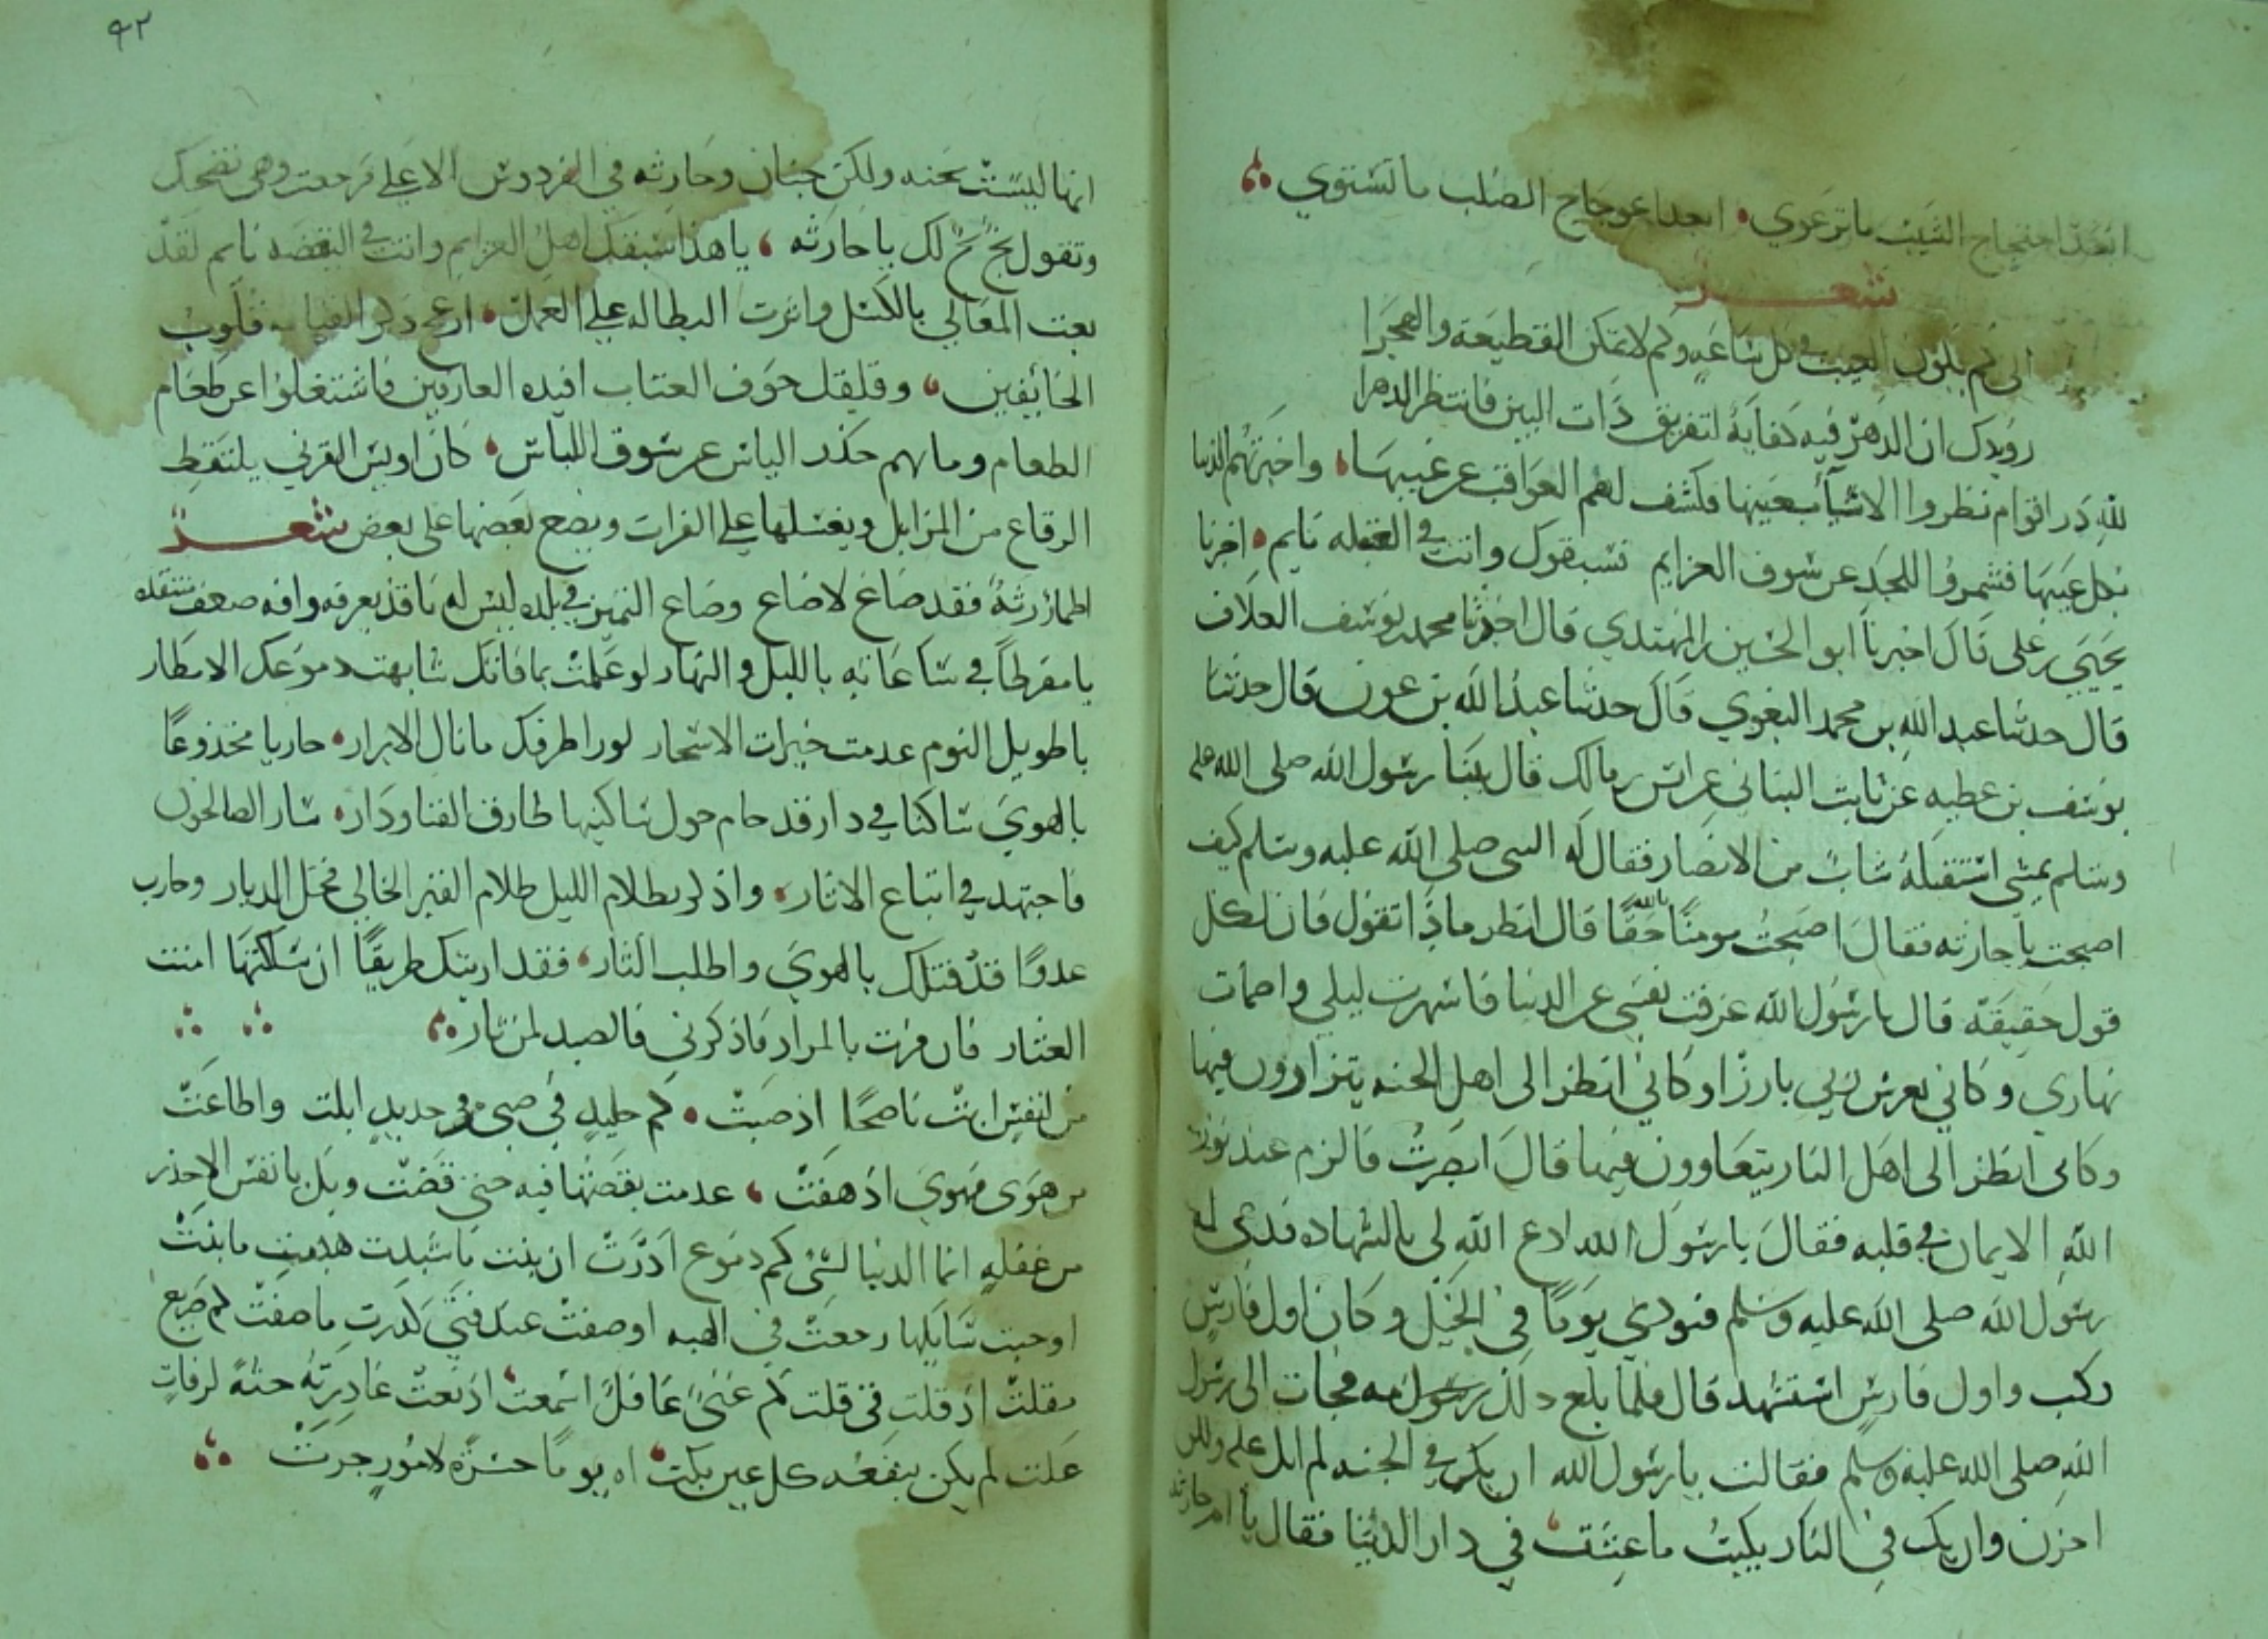 ابعد احتجاج الشيب ما ترعوي ابعد اعوجاج الصلب ما تستوي
شعر
الى كم يكون العتب في كل ساعة وكم لا تملن القطيعة والهجرا
رويدك ان الدهر فيه كفاية لتفريق ذات البين فانتظر الدهرا
لله در اقوام نظروا الاشيآء بعينها فكشف لهم العواقب عن غيبها واخبرتهم الدنيا
بكل عيبها فشمروا للجد عن سوق العزايم نسبقوك وانت في الغفله نايم اخبرنا
يحيى بن على قال اخبرنا ابو الحسين بن المهتدي قال اخبرنا محمد بن يوسف العلاف
قال حدثنا عبد الله بن محمد البغوي قال حدثنا عبد الله بن عون قال حدثنا
يوسف بن عطيه عن ثابت البناني عن انس بن مالك قال بينا رسول الله صلى الله عليه
وسلم يمشي استقبله شاب من الانصار فقال له النبى صلى الله عليه وسلم كيف
اصبحت يا حارثه فقال اصبحت مومنا بالله حقا قال انظر ماذا تقول فان لكل
قول حقيقة قال يا رسول الله عزفت نفسي عن الدنيا فاسهرت ليلي واظمات
نهاري وكاني بعرش ربي بارزا وكاني انظر الى اهل الجنه يتزاورون فيها
وكانى انظر الى اهل النار يتعاوون فيها قال ابصرت فالزم عبد نور
الله الايمان في قلبه فقال يا رسول الله ادع الله لى بالشهاده فدعى له
رسول الله صلى الله عليه وسلم فنودي يوما في الخيل وكان اول فارس
ركب واول فارس استشهد قال فلما بلغ ذلك امه فجات الى رسول
الله صلى الله عليه وسلم فقالت يا رسول الله ان يكن في الجنه لم ابك عليه ولم
احزن وان يك في النار بكيت ما عشت في دار الدنيا فقال يا ام حارثه
٩٢
انها ليست بجنه ولكن جنان وحارثه في الفردوس الاعلى فرجعت وهى تضحك
وتقول بخ بخ لك يا حارثه يا هذا سبقك اهل العزايم وانت في اليقضه نايم لقد
بعت المعالي بالكسل واثرت البطاله على العمل ازعج ذكر القيامه قلوب
الخايفين وقلقل خوف العتاب افيده العارفين فاشتغلوا عن طعام
الطعام ومالهم حذر الباس عن سوق اللباس كان اويس القرني يلتقط
الرقاع من المزابل ويغسلها على الفرات ويضع بعضها على بعض شعر
اطمار رثة فقد ضاع لا ضاع وضاع التميز في بلده ليس له ناقد يعرفه وافه ضعف منتقده
يا مفرطا في ساعاته بالليل والنهار لو علمت ما فاتك شابهت دموعك الامطار
يا طويل النوم عدمت خيرات الاسحار لو راى طرفك ما نال الابرار حار يا مخدوعا
بالهوى ساكنا في دار قد حام حول ساكنيها طارق الفنا ودار سار الصالحون
فاجتهد في اتباع الاثار واذكر بظلام الليل ظلام القبر الخالي فحل الديار وحارب
عدوا قد قتلك بالهوى واطلب الثار فقد اريتك طريقا ان سلكتها امنت
العثار فان فزت بالمراد فاذكرني فالصيد لمن ثار
من لنفس ابت ناصحا اذ صبت كم جليد في صبى وجديد ابلت واطاعت
من هوى مهوى اذ هفت عدمت بقضها فيه حتى قضت ويك يا نفس الا حذر
من غفله انما الدنيا لشئ كم دموع اذرت ان بنت ما شيدت هدمت ما بنت
او حبت سايلها رجعت في الهبه او صفت عند فتى كدرت ما صفت كم صريع
مقلت اذ قلت فى قلت كم غنى غافل اسمعت اذ نعت غادرته جثة لرفات
علت لم يكن ينفعه كل عين بكت اه يوما حسرة لامور جرت